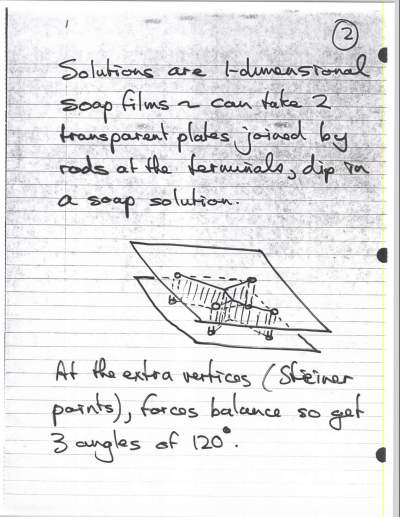 2
Solutions are 1-dimensional
soap films ~ can take 2
transparent plates, joined by
rods at the terminals, dip in
a soap solution.
At the extra vertices (Steiner
points), forces balance so get
3 angles of 120°.